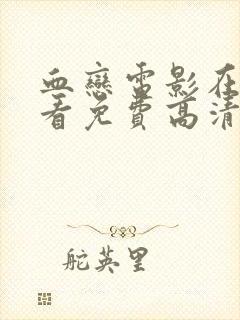 血戀雷影在
看免費高清
舵英里